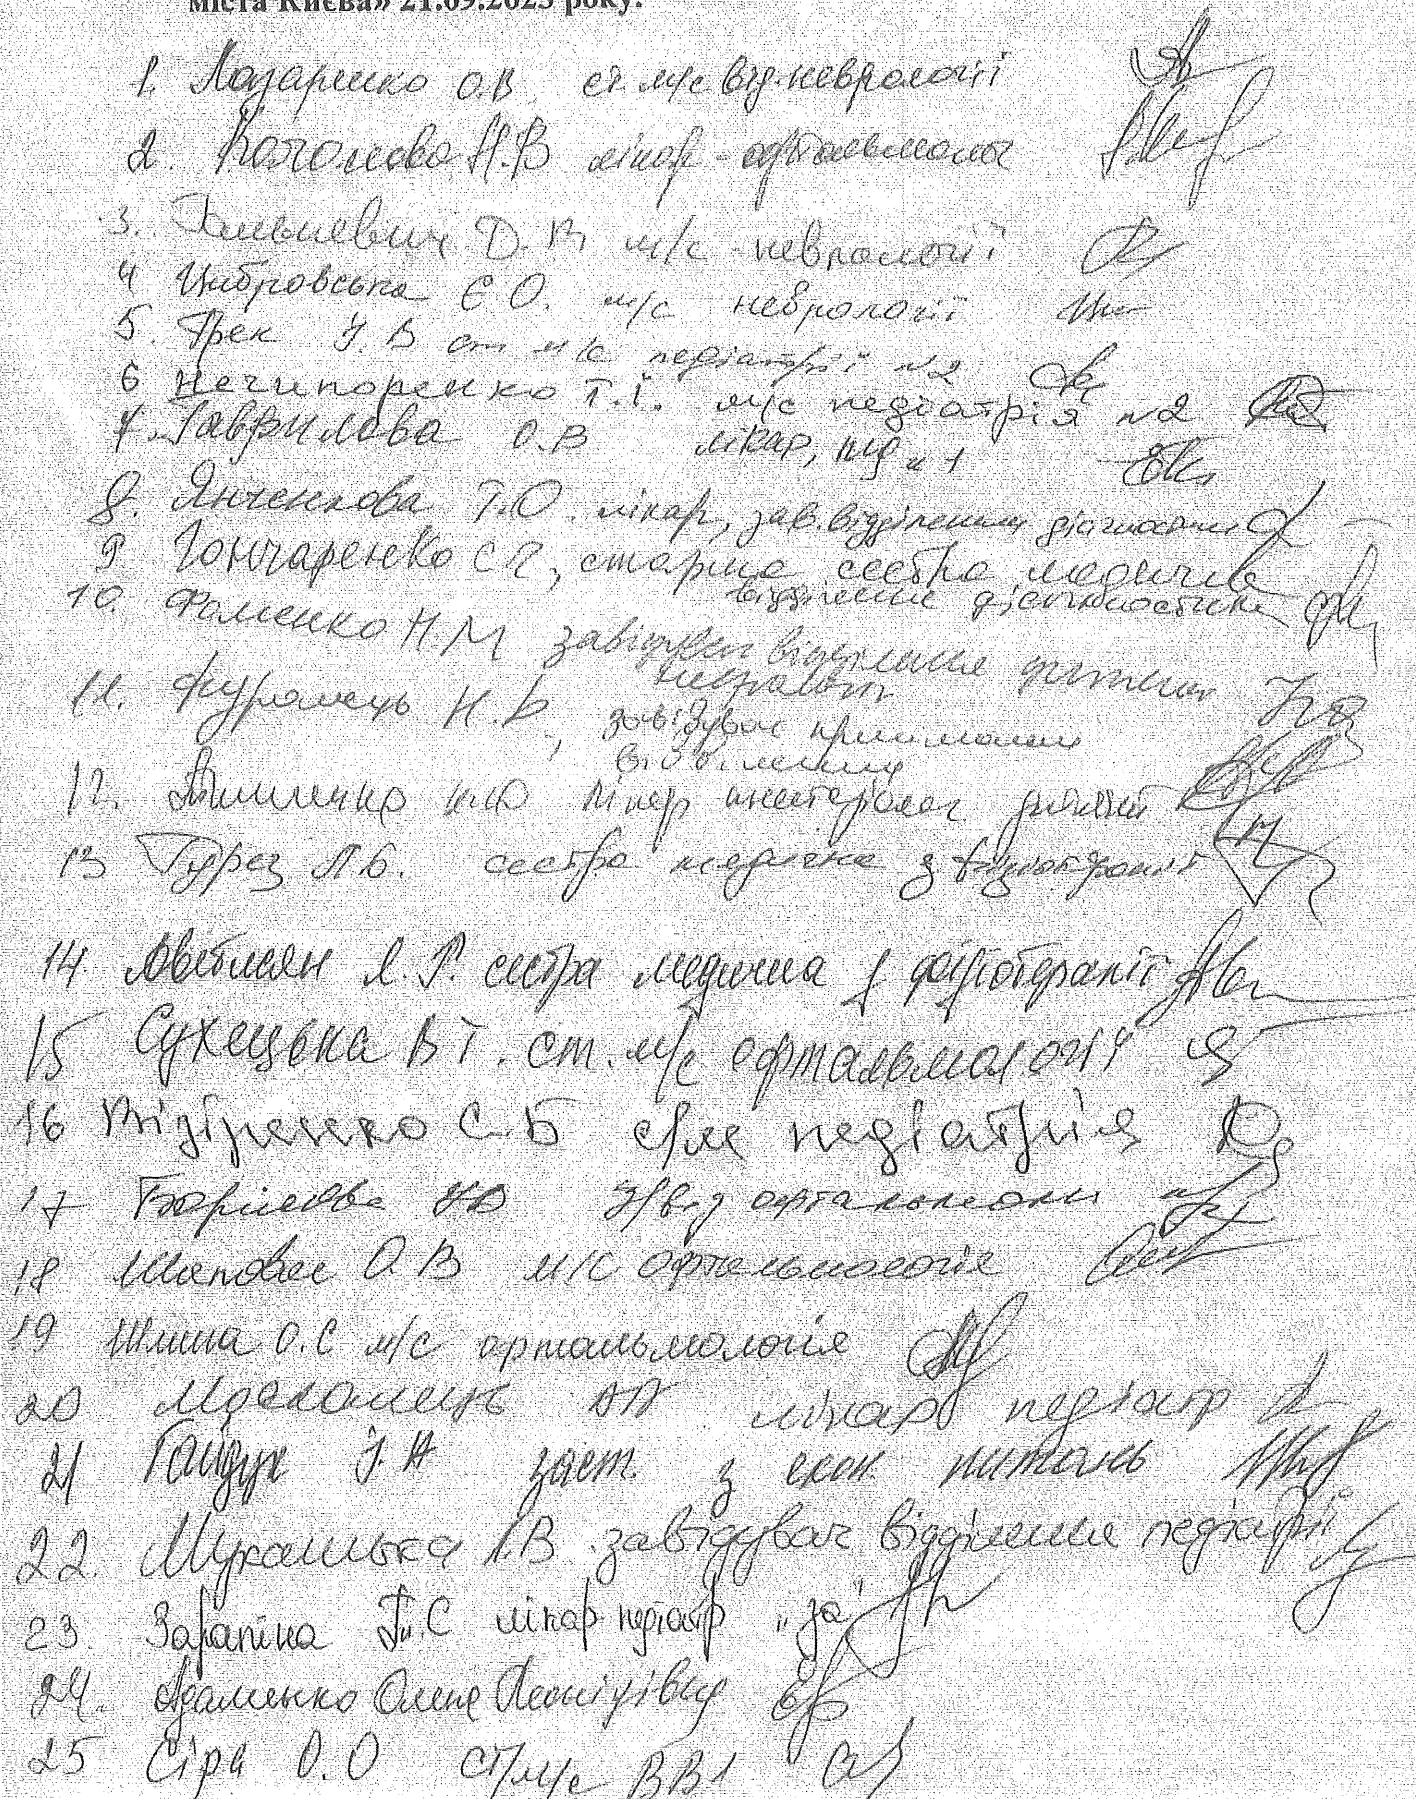 міста Києва» 21.09.2023 року.
1. Назаренко О.В. ст. м/с від. неврології
2. Н.В лікар - офтальмолог
3. Д. В м/с неврології
4 Цибровська Є О. м/с неврології
5. Грек І. В ст м/с педіатрії №2
6 Нечипоренко Т.І. м/с педіатрія №2
7. Гаврилова О.В лікар, №1
8. Янченкова Т.О. лікар, зав. відділенням діагностики
9 Гончаренко С Г, старша сестра медична
відділення діагностики
10. Фоменко Н.М завідувач відділення дитячої
неврології
11. Н.В, завідувач приймальним
відділенням
12. лікар дитячий
13 Гураз Л Б. сестра медична з фізіотерапії
14. Аветисян Я. Р. сестра медична з фізіотерапії
15 Сухецька В І. ст. м/с офтальмології
16 С.Б с/м педіатрія
17 офтальмології
18 Шаповал О.В м/с офтальмологія
19 О.С м/с офтальмологія
20 Москалець лікар педіатр
21 Гайдук І. А заст. з екон. питань
22. завідувач відділення педіатрії
23. Зарапіна Т.С лікар педіатр „за"
24. Адаменко Олена Леонідівна
25 Сіра О.О ст/м/с ВВ1